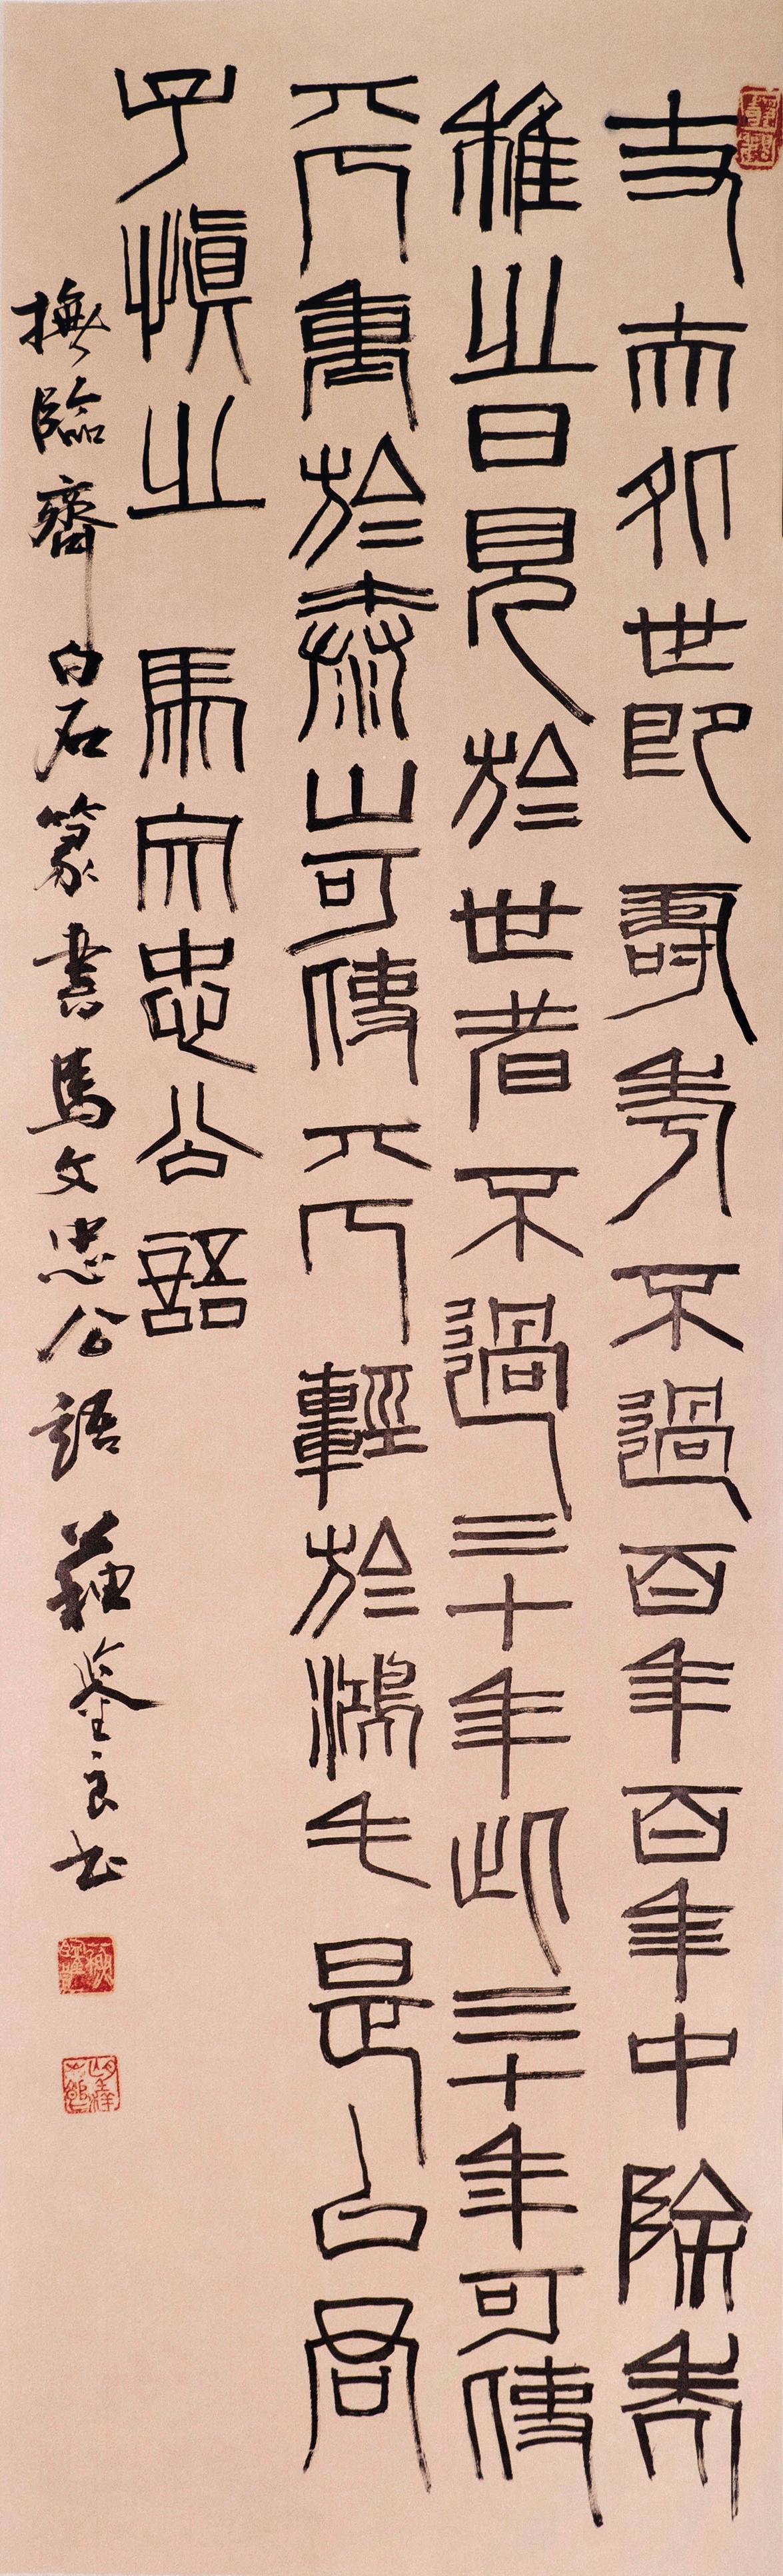 丈夫处世即壽考不過百年百年中除老
稚之日見於世者不過三十年此三十年可使
其重於泰山可使其輕於鴻毛是以君
子慎之 馬文忠公語
撫臨齊白石篆書馬文忠公語 蘇鉴良书